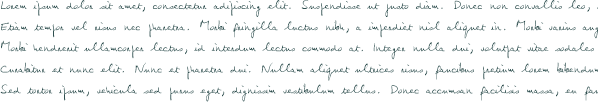 Lorem ipsum dolor sit amet, consectetur adipiscing elit. Suspendisse ut justo diam. Donec non convallis leo,
Etiam tempor vel risus nec pharetra. Morbi fringilla luctus nibh, a imperdiet nisl aliquet in. Morbi varius
Morbi hendrerit ullamcorper lectus, id interdum lectus commodo at. Integer nulla dui, volutpat vitae sodales
Curabitur et nunc elit. Nunc et pharetra dui. Nullam aliquet ultrices risus, faucibus pretium lorem bibendum
Sed tortor ipsum, vehicula sed purus eget, dignissim vestibulum tellus. Donec accumsan facilisis massa, eu